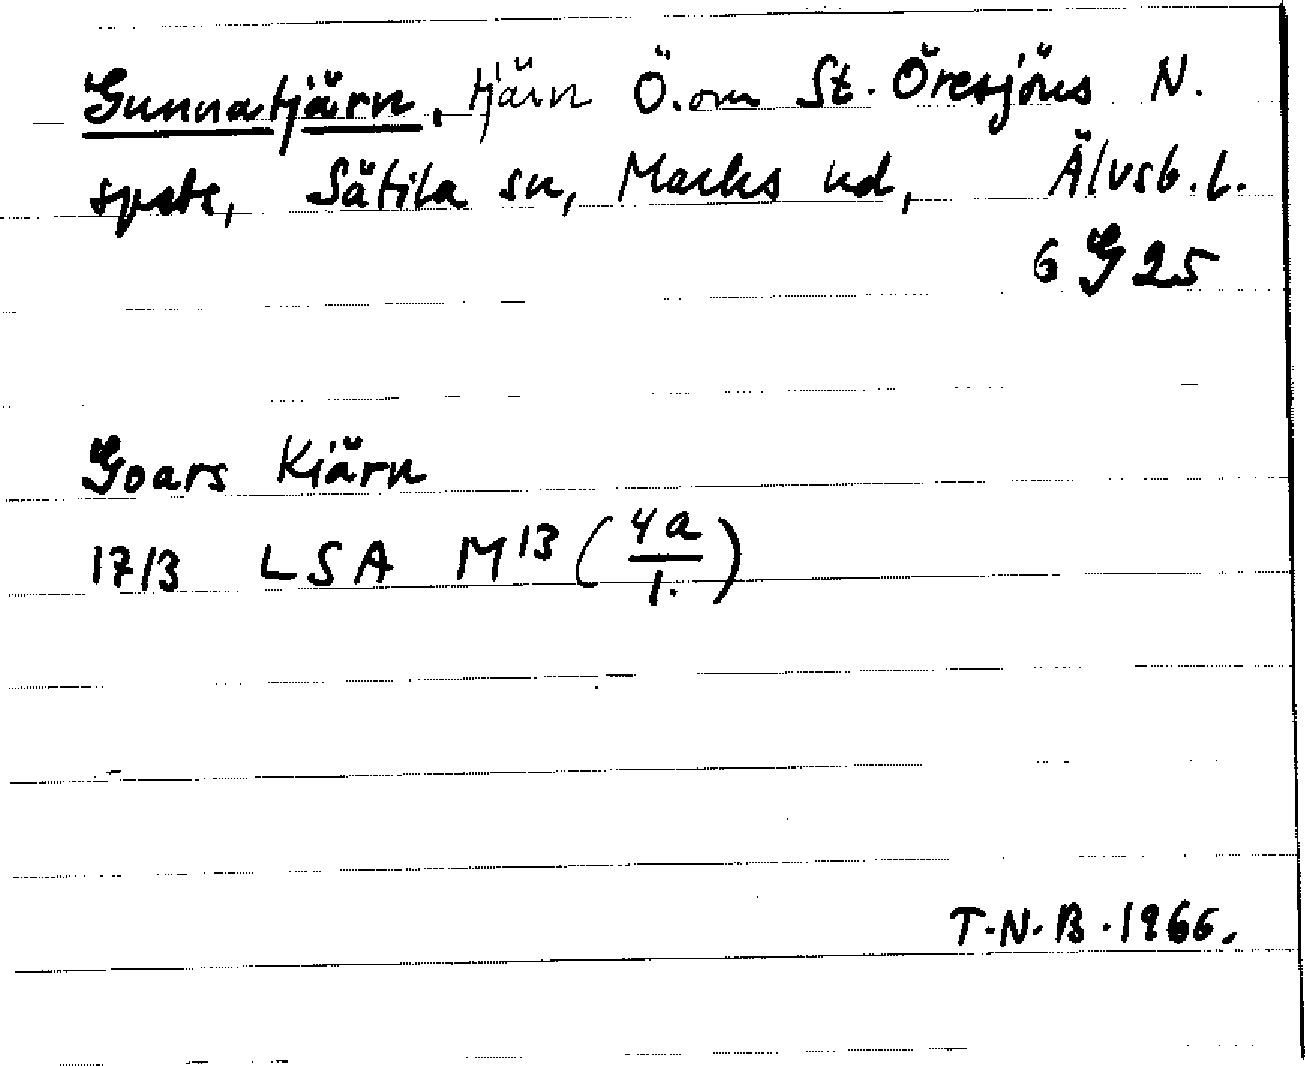 Gunnatjärn, tjärn Ö. om St. Öresjöns N.
spets, Sätila sn, Marks hd, Älvsb. l.
6 G 25
Goars Kiärn
1713 LSA M13 (4a/1.)
T.N.B. 1966.